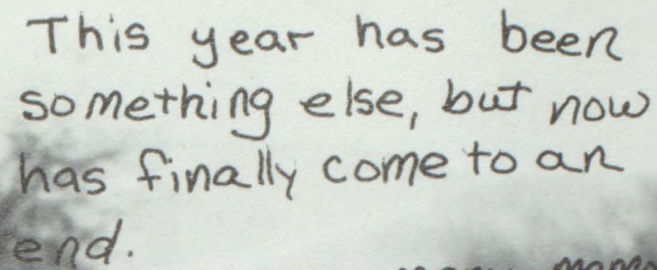 This year has been
something else, but now
has finally come to an
end.